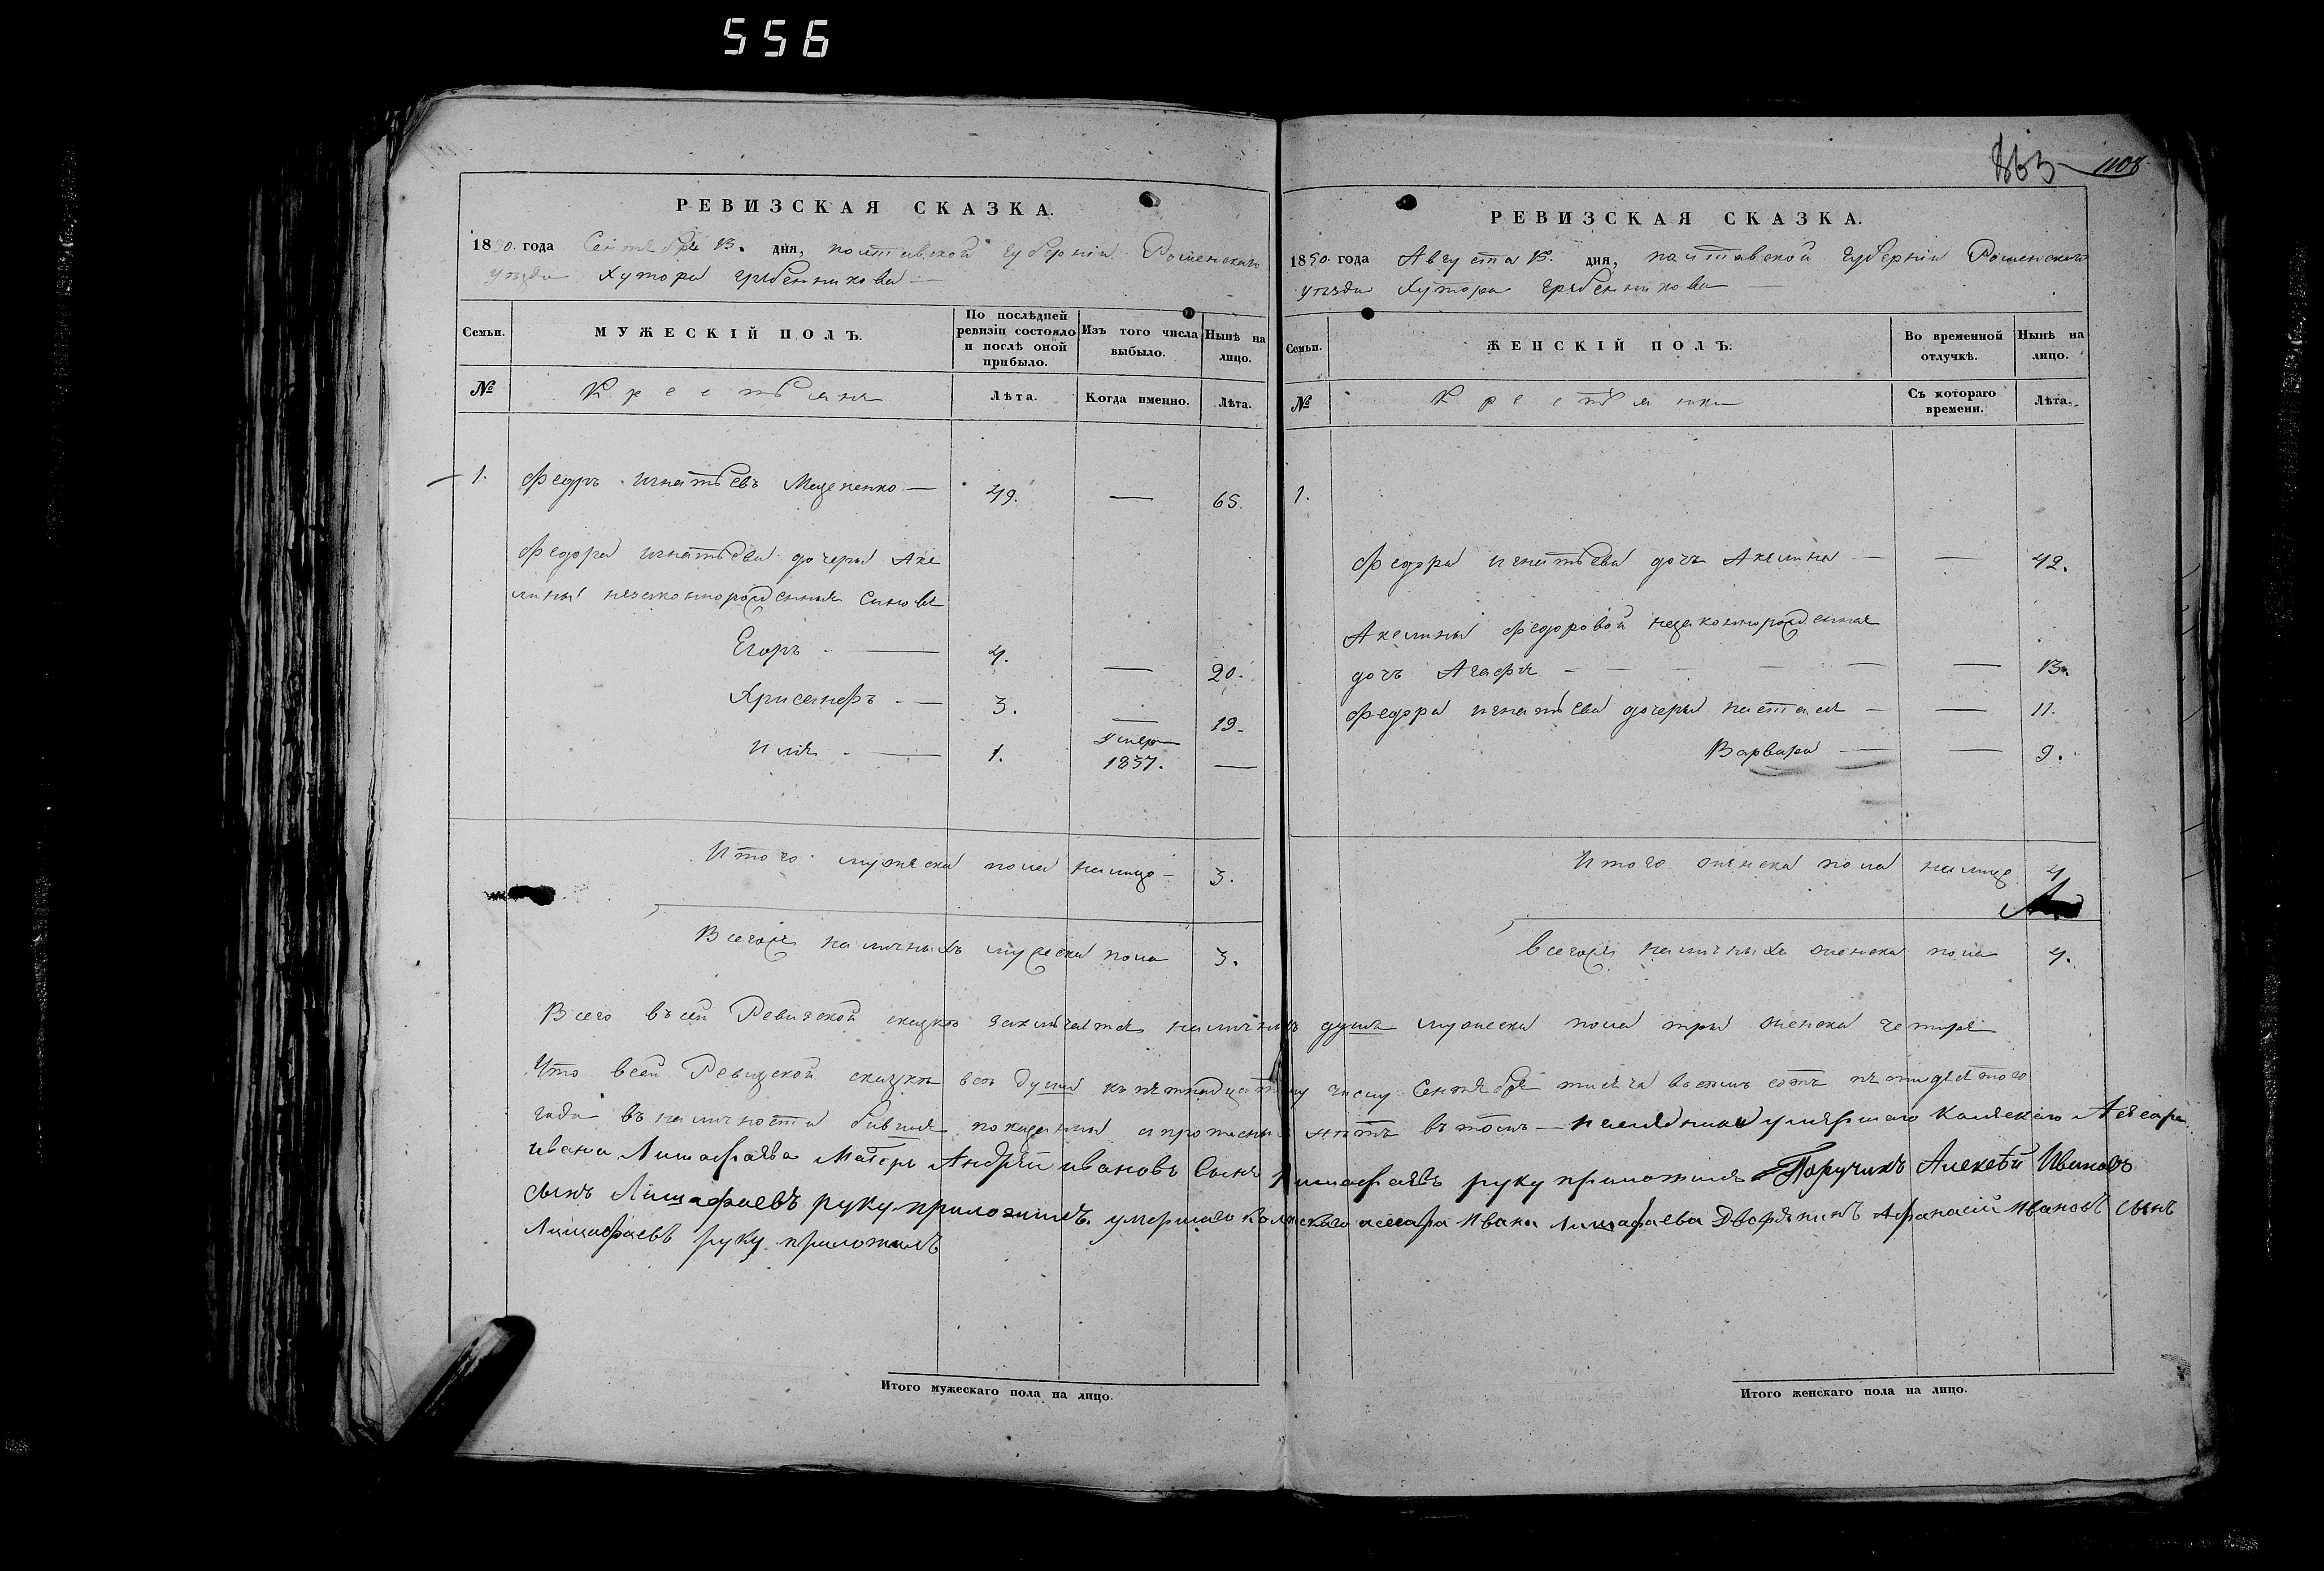 556
863 1108
РЕВИЗСКАЯ СКАЗКА.
1850. года Сентября 13. дня, полтавской губерніи Роменскаго
уезда Хутора грѣбенникова
Семьи.
МУЖЕСКІЙ ПОЛЪ.
По послѣдней ревизіи состояло и послѣ оной прибыло.
Изъ того числа выбыло.
Нынѣ на лицо.
№
Крестьяне
Лѣта.
Когда именно.
Лѣта.
1. Федоръ игнатьевъ Маценко — 49. — 65.
Федора игнатьева дочери Аке
лины незаконнорожденныя Сыновья
Егоръ — 4. — 20.
Хрисанфъ — 3. — 19.
Илья — 1. Умеръ 1837. —
Итого мужеска пола налицо — 3.
Всегожъ наличныхъ мужеска пола 3.
РЕВИЗСКАЯ СКАЗКА.
1850 года Августа 13. дня, полтавской губерніи Роменскаго
уезда Хутора грѣбенникова
Семьи.
ЖЕНСКІЙ ПОЛЪ.
Во временной отлучкѣ.
Нынѣ на лицо.
№
Крестьянки
Съ котораго времени.
Лѣта.
1.
Федора игнатьева дочь Акилина — — 42.
Акилины Федоровой незаконнорожденная
дочь Агафя — — 13.
Федора игнатьева дочери Настася — — 11.
Варвара — — 9.
Итого женска пола налицо 4
всегожъ наличныхъ женска пола 4.
Всего въсей Ревизской сказкѣ заключается наличныхъ душъ мужеска пола три женска четыре
Что всей Ревизской сказкѣ всѣ души къ пятнадцатому числу Сентября тысяча восемь сотъ пятидѣятого
года въ наличности бывшия показаны апрописныхъ нѣтъ въ томъ — умершаго Колежскаго Асесора
ивана Лишафаева Андрей ивановъ Сынъ Лишафаевъ руку приложилъ Поручикъ Алексѣй Ивановъ
сынъ Лишафаевъ руку приложилъ. умершаго Колежскаго асесара Ивана Лишафаева Дворянинъ Афанасій Ивановъ сынъ
Лишафаевъ руку приложилъ
Итого мужескаго пола на лицо.
Итого женскаго пола на лицо.